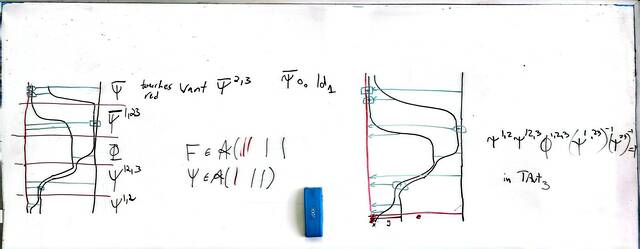 Ψ̄ touches red want Ψ̄^{2,3} Ψ̄ ∘₀ Id₁
Ψ̄^{1,23}
Φ
Ψ^{12,3}
Ψ^{1,2}
F ∈ A(
Ψ ∈ A(
Ψ^{1,2} Ψ^{12,3} Φ^{1,2,3} (Ψ^{1,23})^{-1} (Ψ^{2,3})^{-1} = 1
in TAut₃
x y